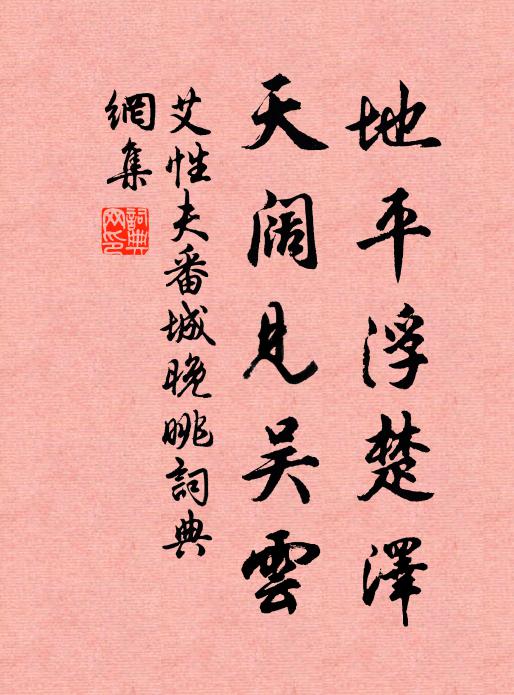 地平浮楚澤
天闊見吴雲
艾性夫番城晚眺詞典
網集
詞典網印